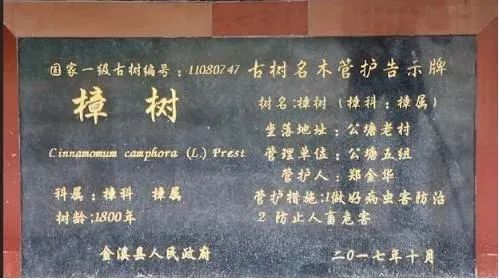 国家一级古树编号：11080747
樟树
Cinnamomum camphora (L.) Prest
科属：樟科 樟属
树龄:1800年
金溪县人民政府
古树名木管护告示牌
树名:樟树（樟科：樟属）
坐落地址：公塘老村
管理单位：公塘五组
管护人：郑金华
管护措施:1做好病虫害防治
2 防止人畜危害
二〇一七年十月